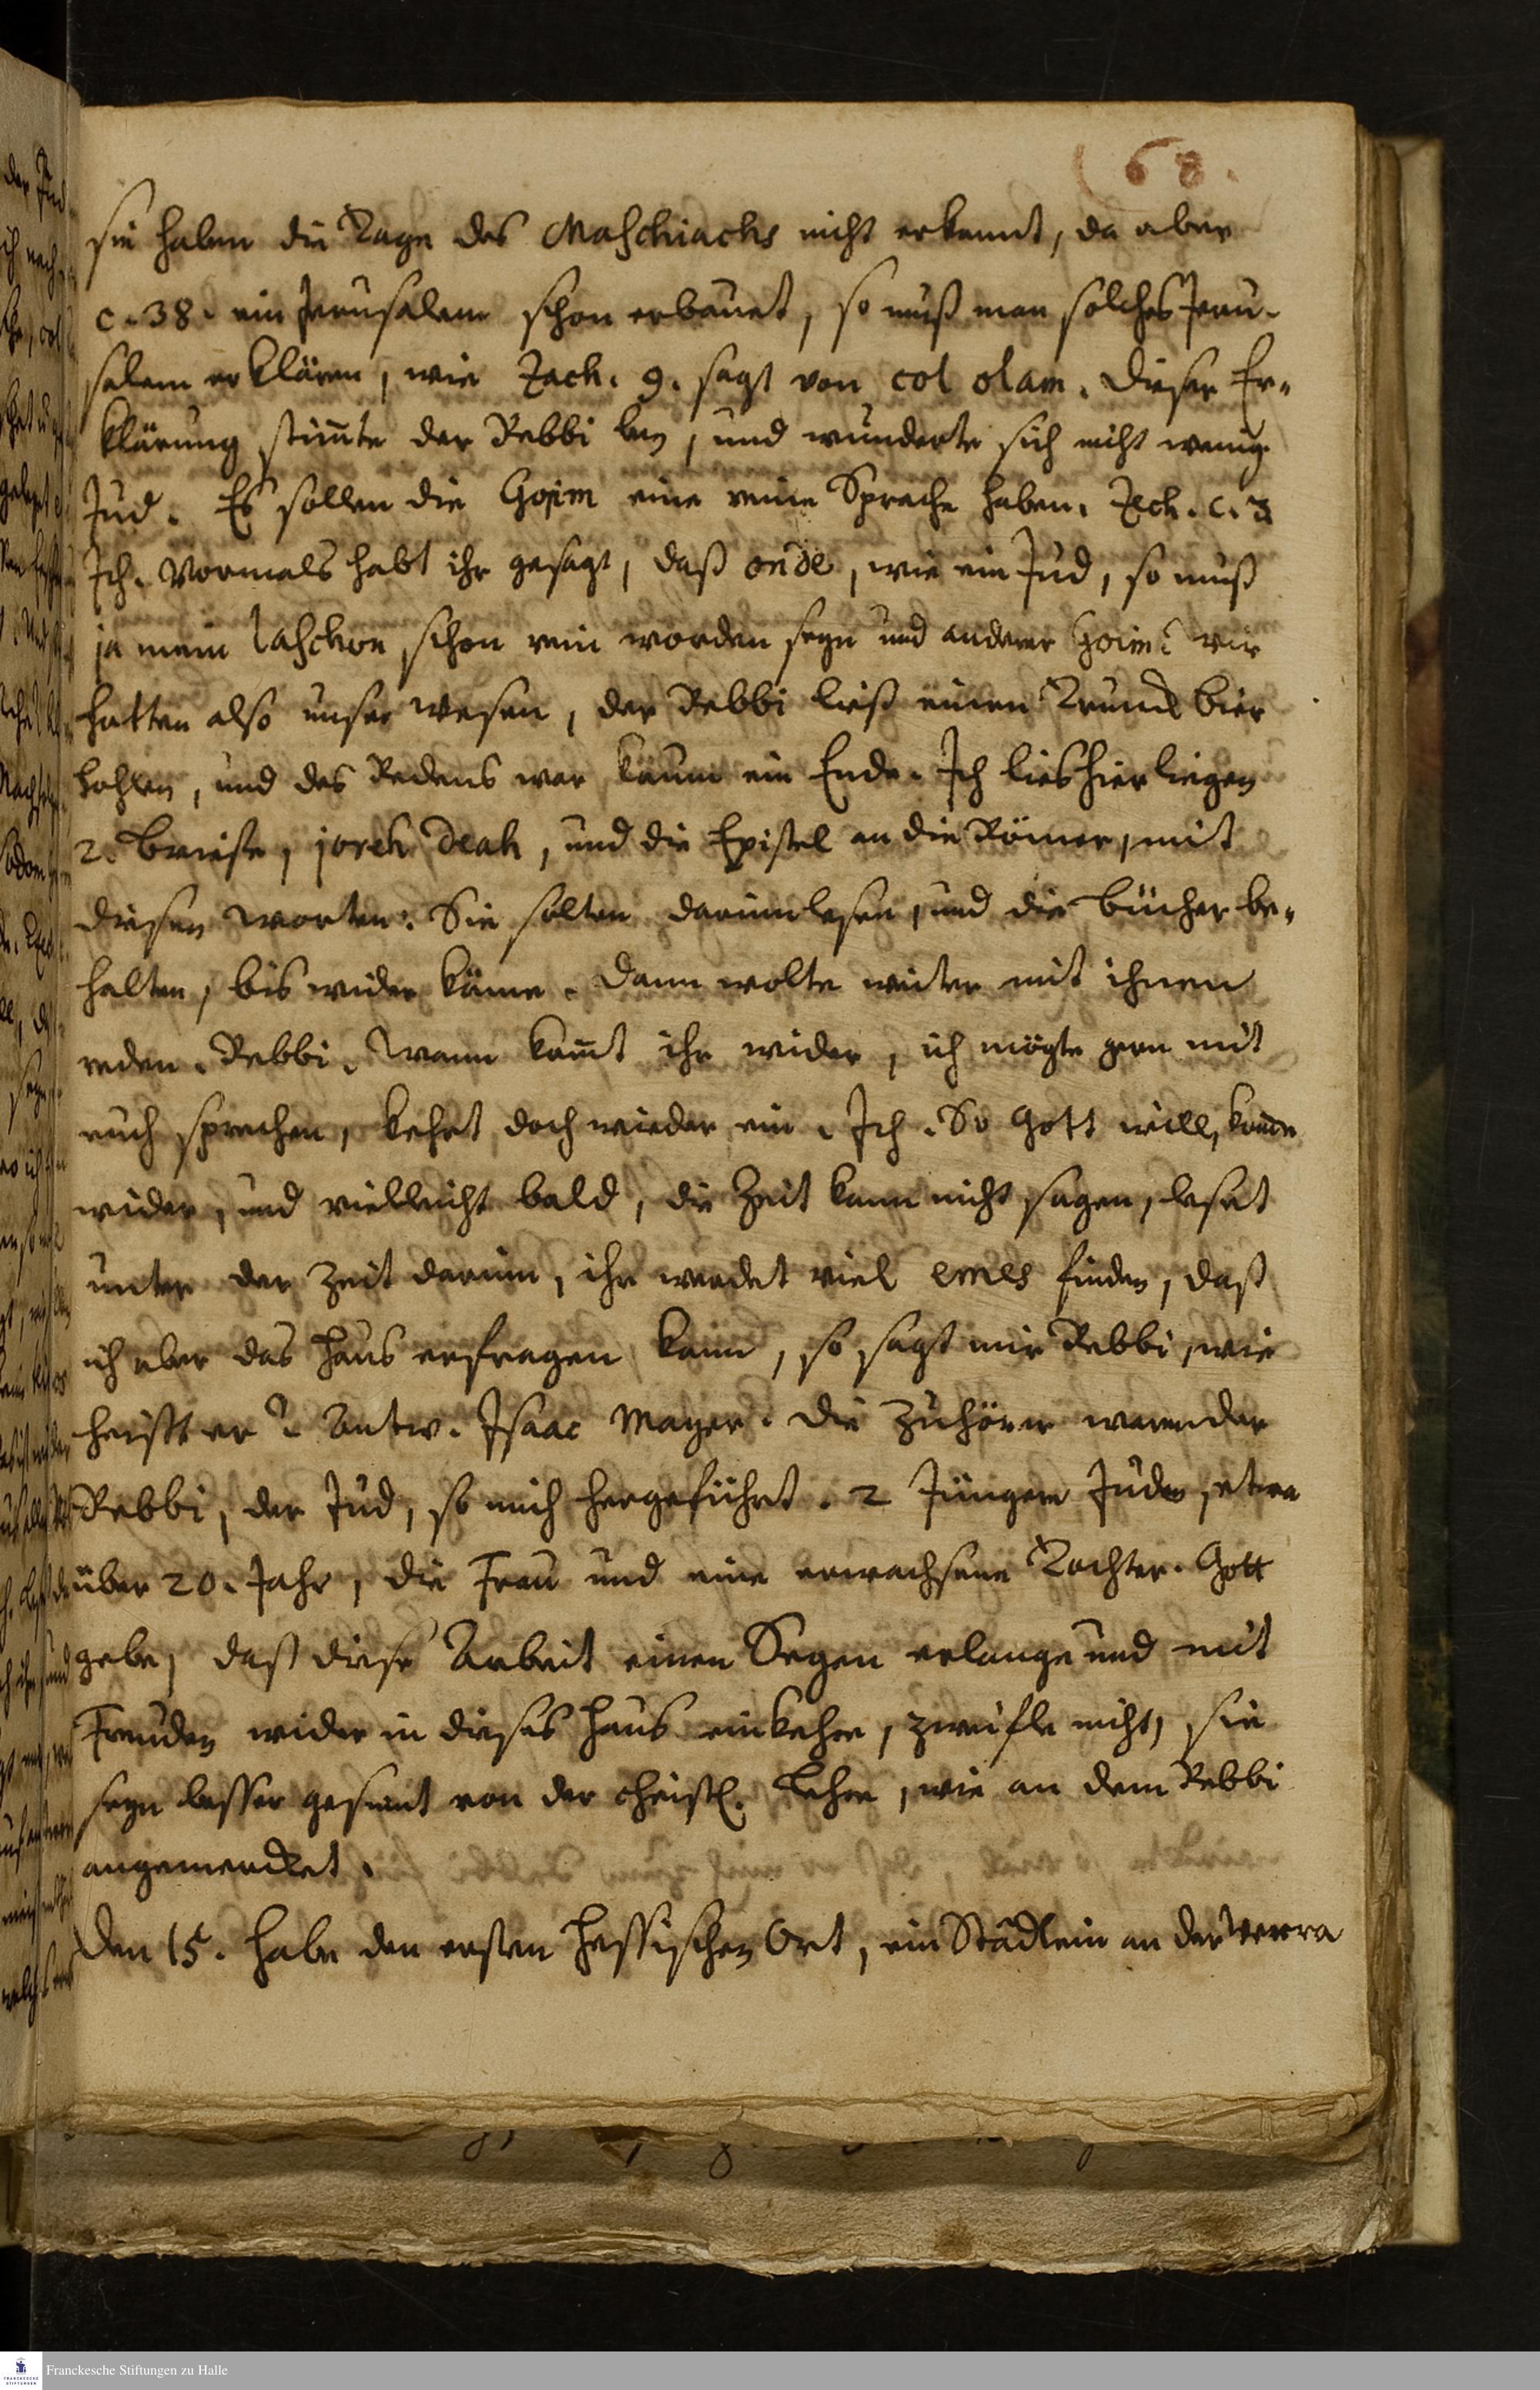 68.
sie haben die Tage des Maschiachs nicht erkannt, da aber
c. 38. ein Jerusalem schon erbauet, so muß man solches Jeru-
salem erklären, wie Zach. 9. sagt von col olam. Dieser Er-
klärung stimte der Rebbi bey, und wunderte sich nicht wenig.
Jud. Es sollen die Gojim eine reine Sprache haben. Zeh. c. 3
Ich. Vormals habt ihr gesagt, daß oride, wie ein Jud, so muß
ja mein laschon schon rein worden seyn und anderer Goim? wir
hatten also unser Wesen, der Rebbi ließ einen Trunck bier
hohlen, und des Redens war kaum ein Ende. Ich ließ hier liegen
2. brieffe, joreh deah, und die Epistel an die Römer, mit
diesen worten: Sie solten darinn lesen, und die bücher be-
halten, bis wider käme. dann wolte weiter mit ihnen
reden. Rebbi. Wann komt ihr wider, ich mögte gern mit
euch sprechen, kehrt doch wieder ein. Ich. So Gott will, komme
wider, und vielleicht bald, die Zeit kann nicht sagen, leset
unter der Zeit darinn, ihr werdet viel emes finden, daß
ich aber das Haus erfragen kann, so sagt mir Rebbi, wie
heisst er? Antw. Isaac Mayer. die Zuhörer waren der
Rebbi, der Jud, so mich hergeführt. 2 jüngere Juden, etwa
über 20. Jahr, die Frau und eine erwachsene Tochter. Gott
gebe, daß diese Arbeit einen Segen erlange und mit
Freuden wider in dieses Haus einkehre, zweifle nicht, sie
seyn besser gesinnt von der christl. Lehre, wie an dem Rebbi
angemercket.
Den 15. habe den ersten Hessischen Ort, ein Städlein an der Werra
Franckesche Stiftungen zu Halle